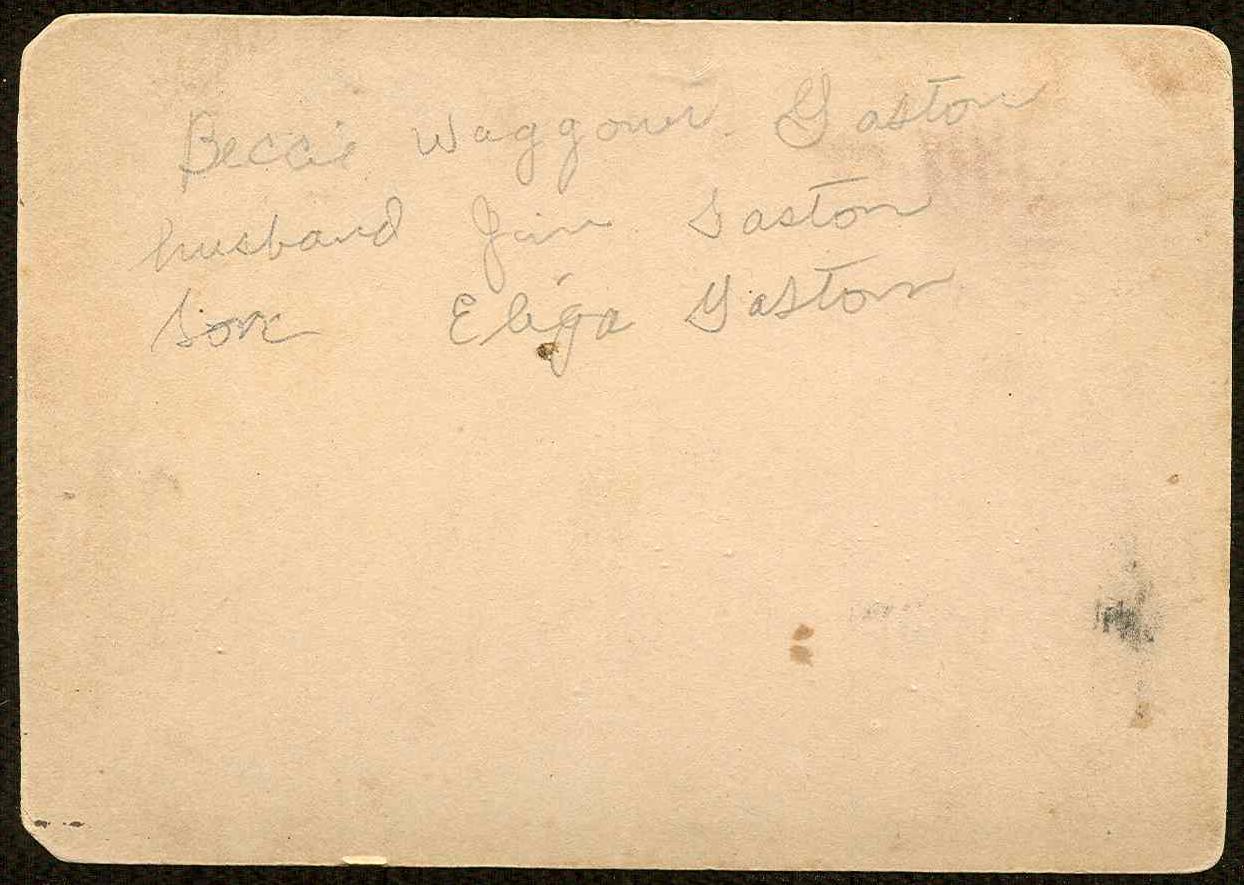 Beccie Waggoner Gaston
husband Jim Gaston
Son Eliga Gaston